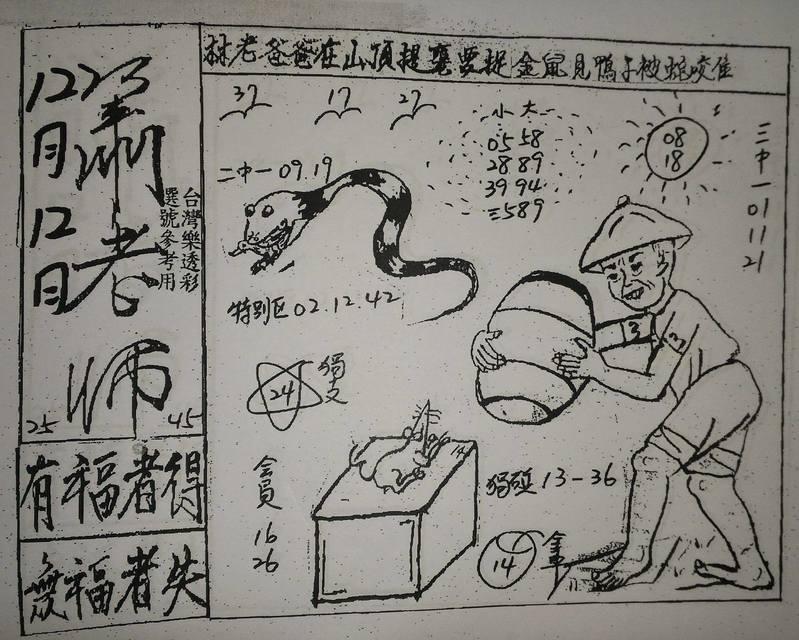 林老爸爸在山頂提甕要捉金鼠見鴨子被蛇咬住
12月12日
老師
台灣樂透彩
選號參考用
25 45
有福者得
無福者失
37 17 27
二中一 09.19
小大
05 58
28 89
39 94
三589
08
18
三中一 01 11 21
特別区 02.12.42
24
獨支
3
3
会員 16 26
14
獨頭 13-36
14